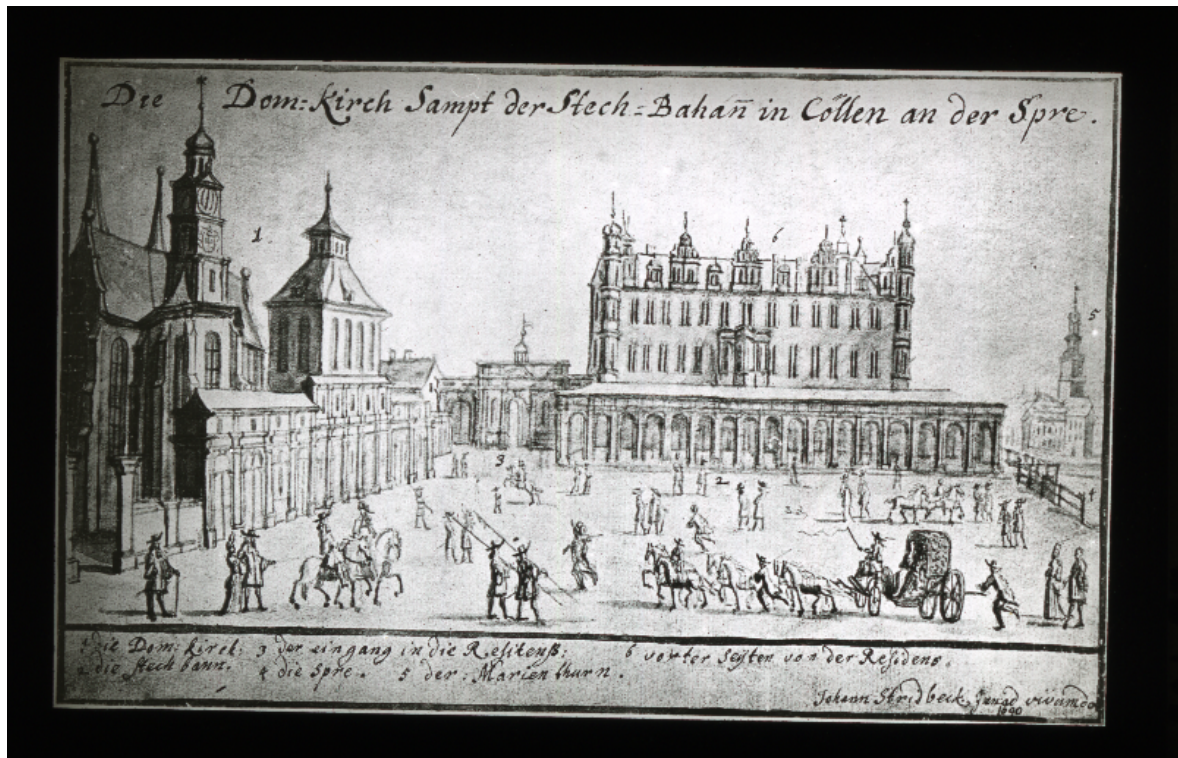 Die Dom=Kirch Sampt der Stech=Bahañ in Cöllen an der Spre.
1.
6
5
3
2
4
1 die Dom: Kirch: 3 der eingang in die Resitenß: 6 vorter Seÿten von der Residens.
2 die Stech bann. 4 die Spre. 5 der: Marien thurn.
Johann Stridbeck, Jun ad vivum
1690